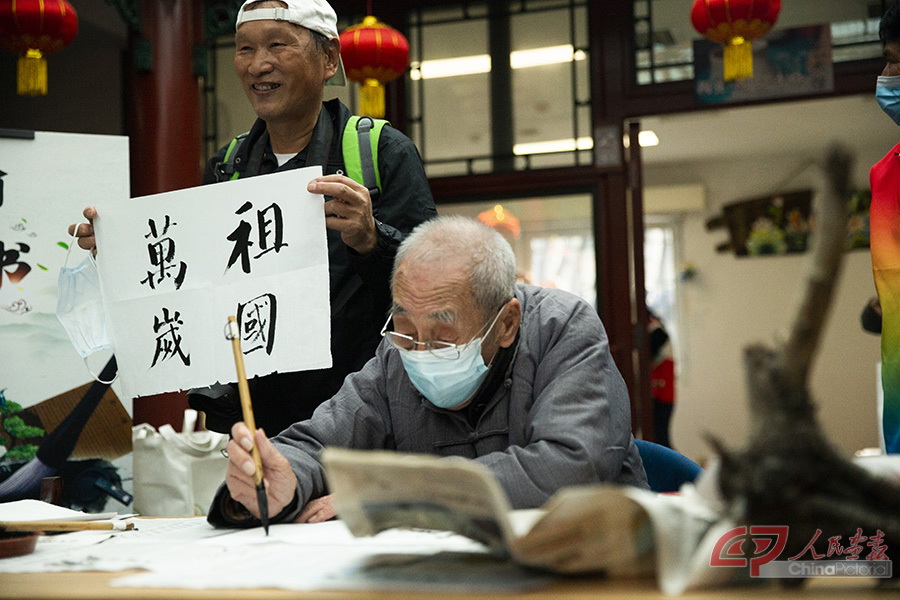 祖國
萬歲
书
人民畫報
ChinaPictorial